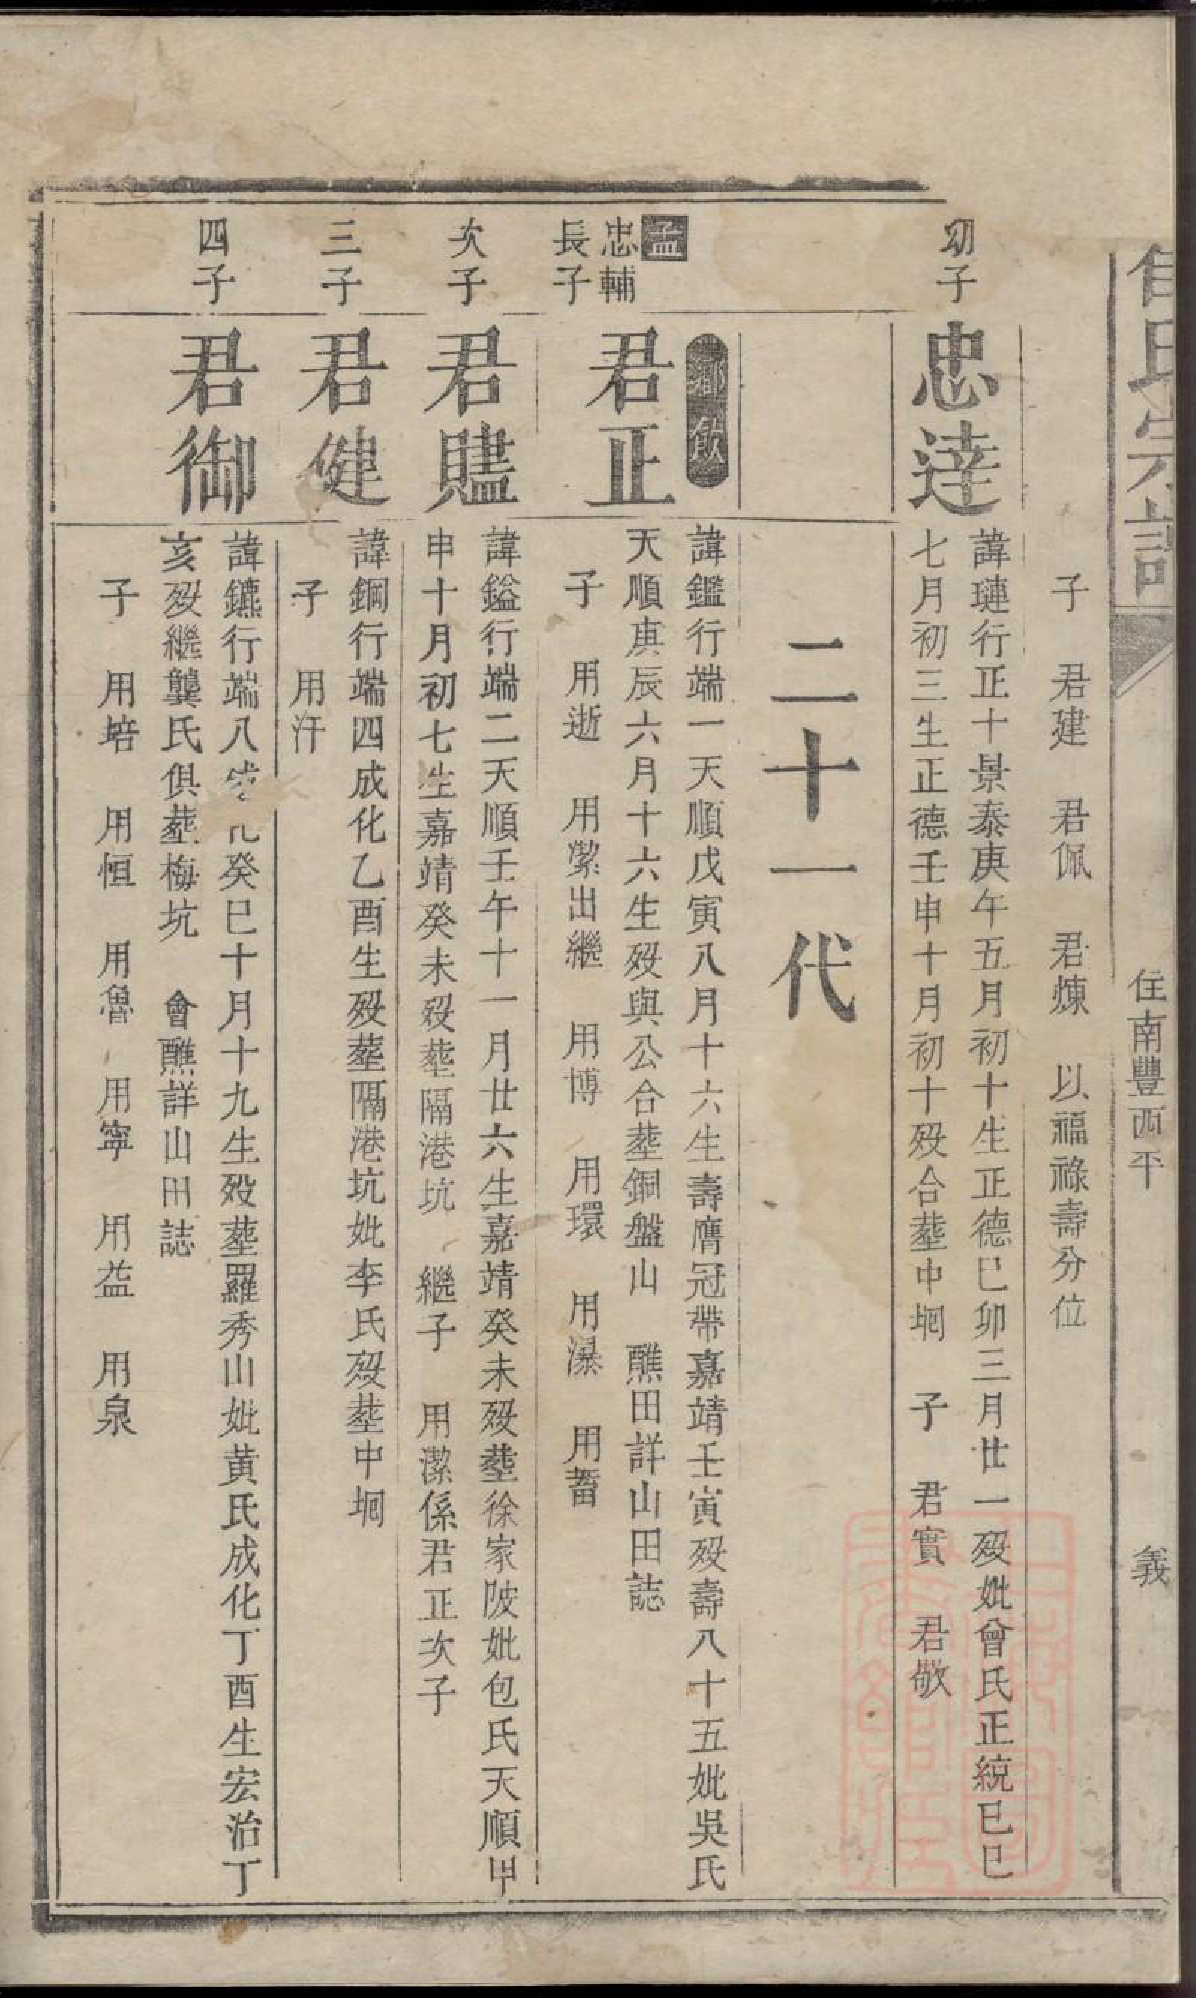 氏宗譜
住南豐西平
義
子　君建　君佩　君煉　以福祿壽分位
幼子
忠達
諱璉行正十景泰庚午五月初十生正德巳卯三月廿一歿妣曾氏正統巳巳
七月初三生正德壬申十月初十歿合塟中垌　子　君實　君敬
二十一代
孟
忠輔
長子
鄉飲
君正
諱鑑行端一天順戊寅八月十六生壽膺冠帶嘉靖壬寅歿壽八十五妣吳氏
天順庚辰六月十六生歿與公合塟銅盤山　醮田詳山田誌
子　用逝　用潔出繼　用博　用環　用瀑　用蓄
次子
君贐
諱鎰行端二天順壬午十一月廿六生嘉靖癸未歿塟徐家陂妣包氏天順甲
申十月初七生嘉靖癸未歿塟隔港坑　繼子　用潔係君正次子
三子
君健
諱鋼行端四成化乙酉生歿塟隔港坑妣李氏歿塟中垌
子　用汗
四子
君御
諱鑣行端八成化癸巳十月十九生歿塟羅秀山妣黃氏成化丁酉生宏治丁
亥歿繼龔氏俱塟梅坑　會醮詳山田誌
子　用培　用恒　用魯　用寧　用益　用泉